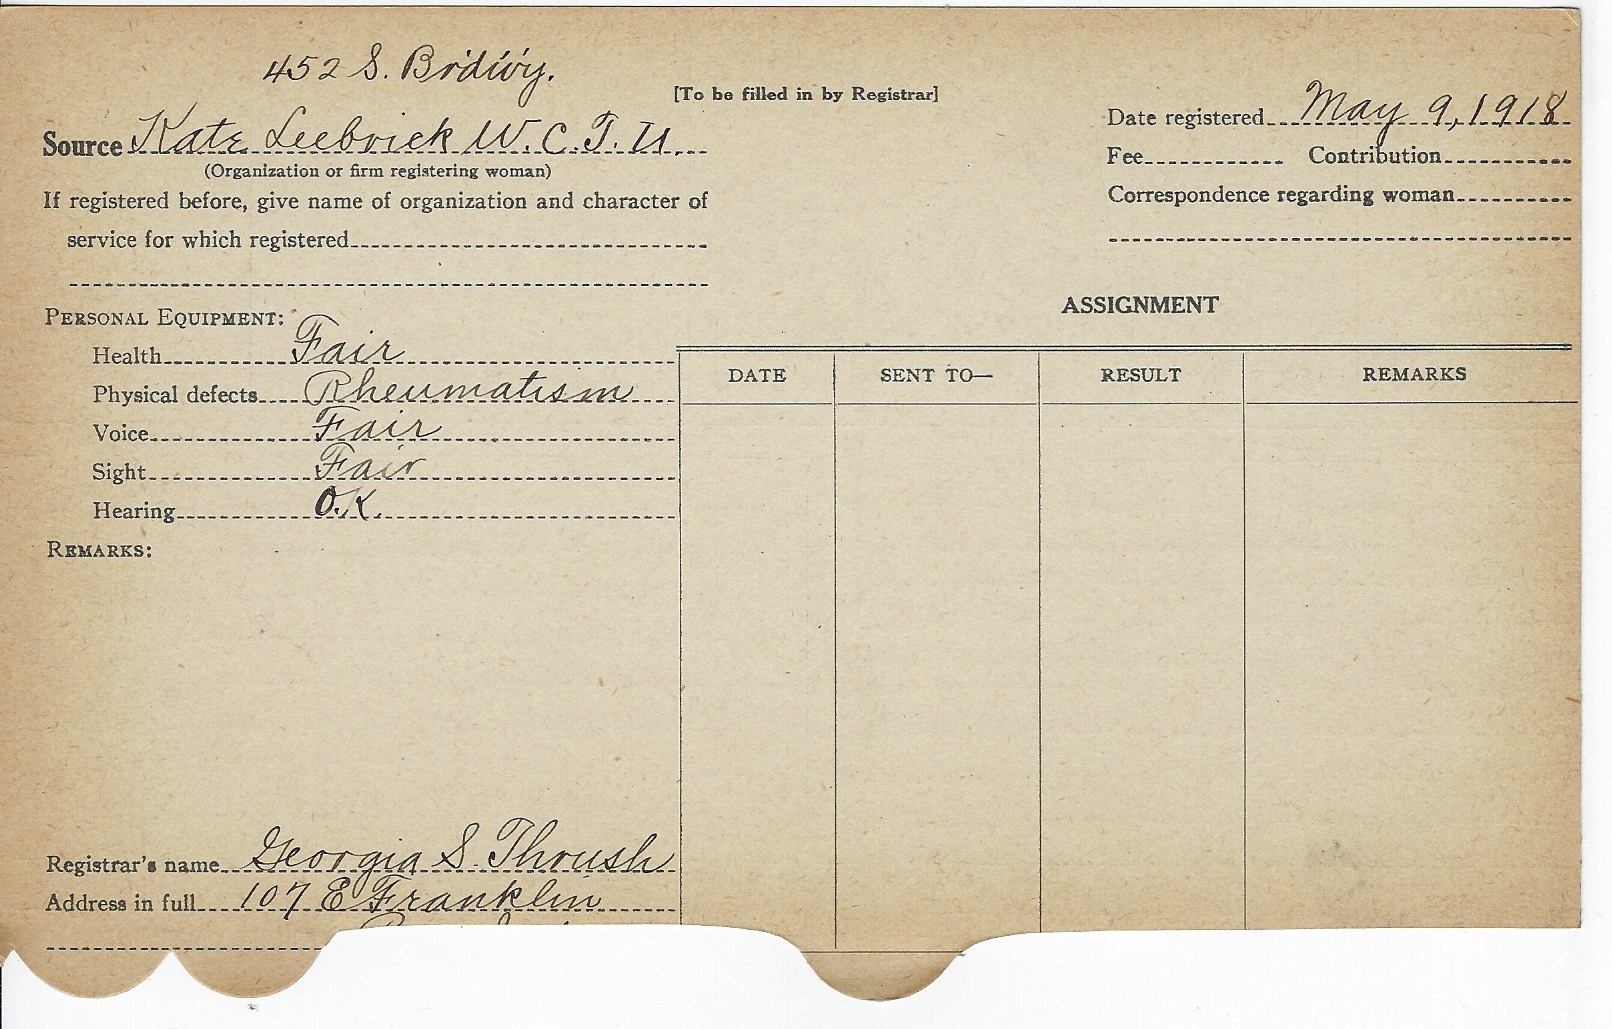 452 S. Brdwy.
[To be filled in by Registrar]
Source Kate Leebrick W. C. T. U.
(Organization or firm registering woman)
If registered before, give name of organization and character of
service for which registered
Date registered May 9, 1918
Fee Contribution
Correspondence regarding woman
PERSONAL EQUIPMENT:
Health Fair
Physical defects Rheumatism
Voice Fair
Sight Fair
Hearing O.K.
REMARKS:
Registrar's name Georgia S. Thrush
Address in full 107 E Franklin
ASSIGNMENT
DATE SENT TO— RESULT REMARKS